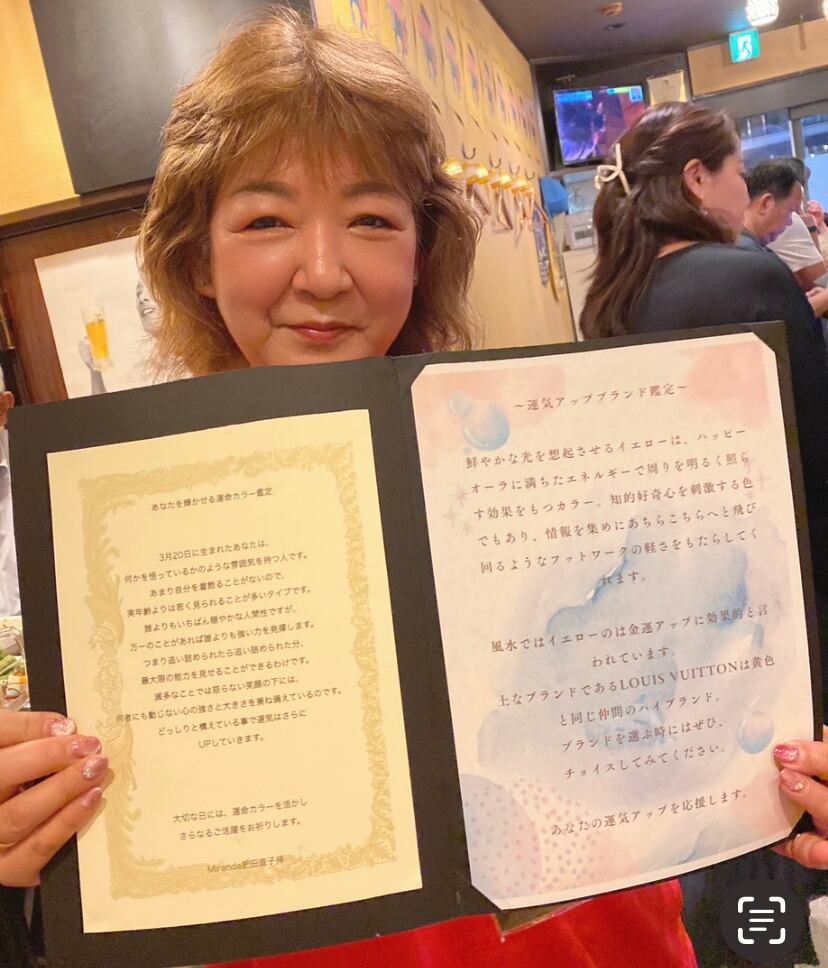 あなたを輝かせる運命カラー鑑定
3月20日に生まれたあなたは、
何かを悟っているかのような雰囲気を持つ人です。
あまり自分を着飾ることがないので、
実年齢よりは若く見られることが多いタイプです。
誰よりもいちばん穏やかな人間性ですが、
万一のことがあれば誰よりも強い力を発揮します。
つまり追い詰められたら追い詰められた分、
最大限の能力を見せることができるわけです。
滅多なことでは怒らない笑顔の下には、
何者にも動じない心の強さと大きさを兼ね備えているのです。
どっしりと構えている事で運気はさらに
UPしていきます。
大切な日には、運命カラーを活かし
さらなるご活躍をお祈りします。
Miranda肥田直子様
~運気アップブランド鑑定~
鮮やかな光を想起させるイエローは、ハッピー
オーラに満ちたエネルギーで周りを明るく照ら
す効果をもつカラー。知的好奇心を刺激する色
でもあり、情報を集めにあちらこちらへと飛び
回るようなフットワークの軽さをもたらしてく
れます。
風水ではイエローのは金運アップに効果的と言
われています。
土なブランドであるLOUIS VUITTONは黄色
と同じ仲間のハイブランド。
ブランドを選ぶ時にはぜひ、
チョイスしてみてください。
あなたの運気アップを応援します。